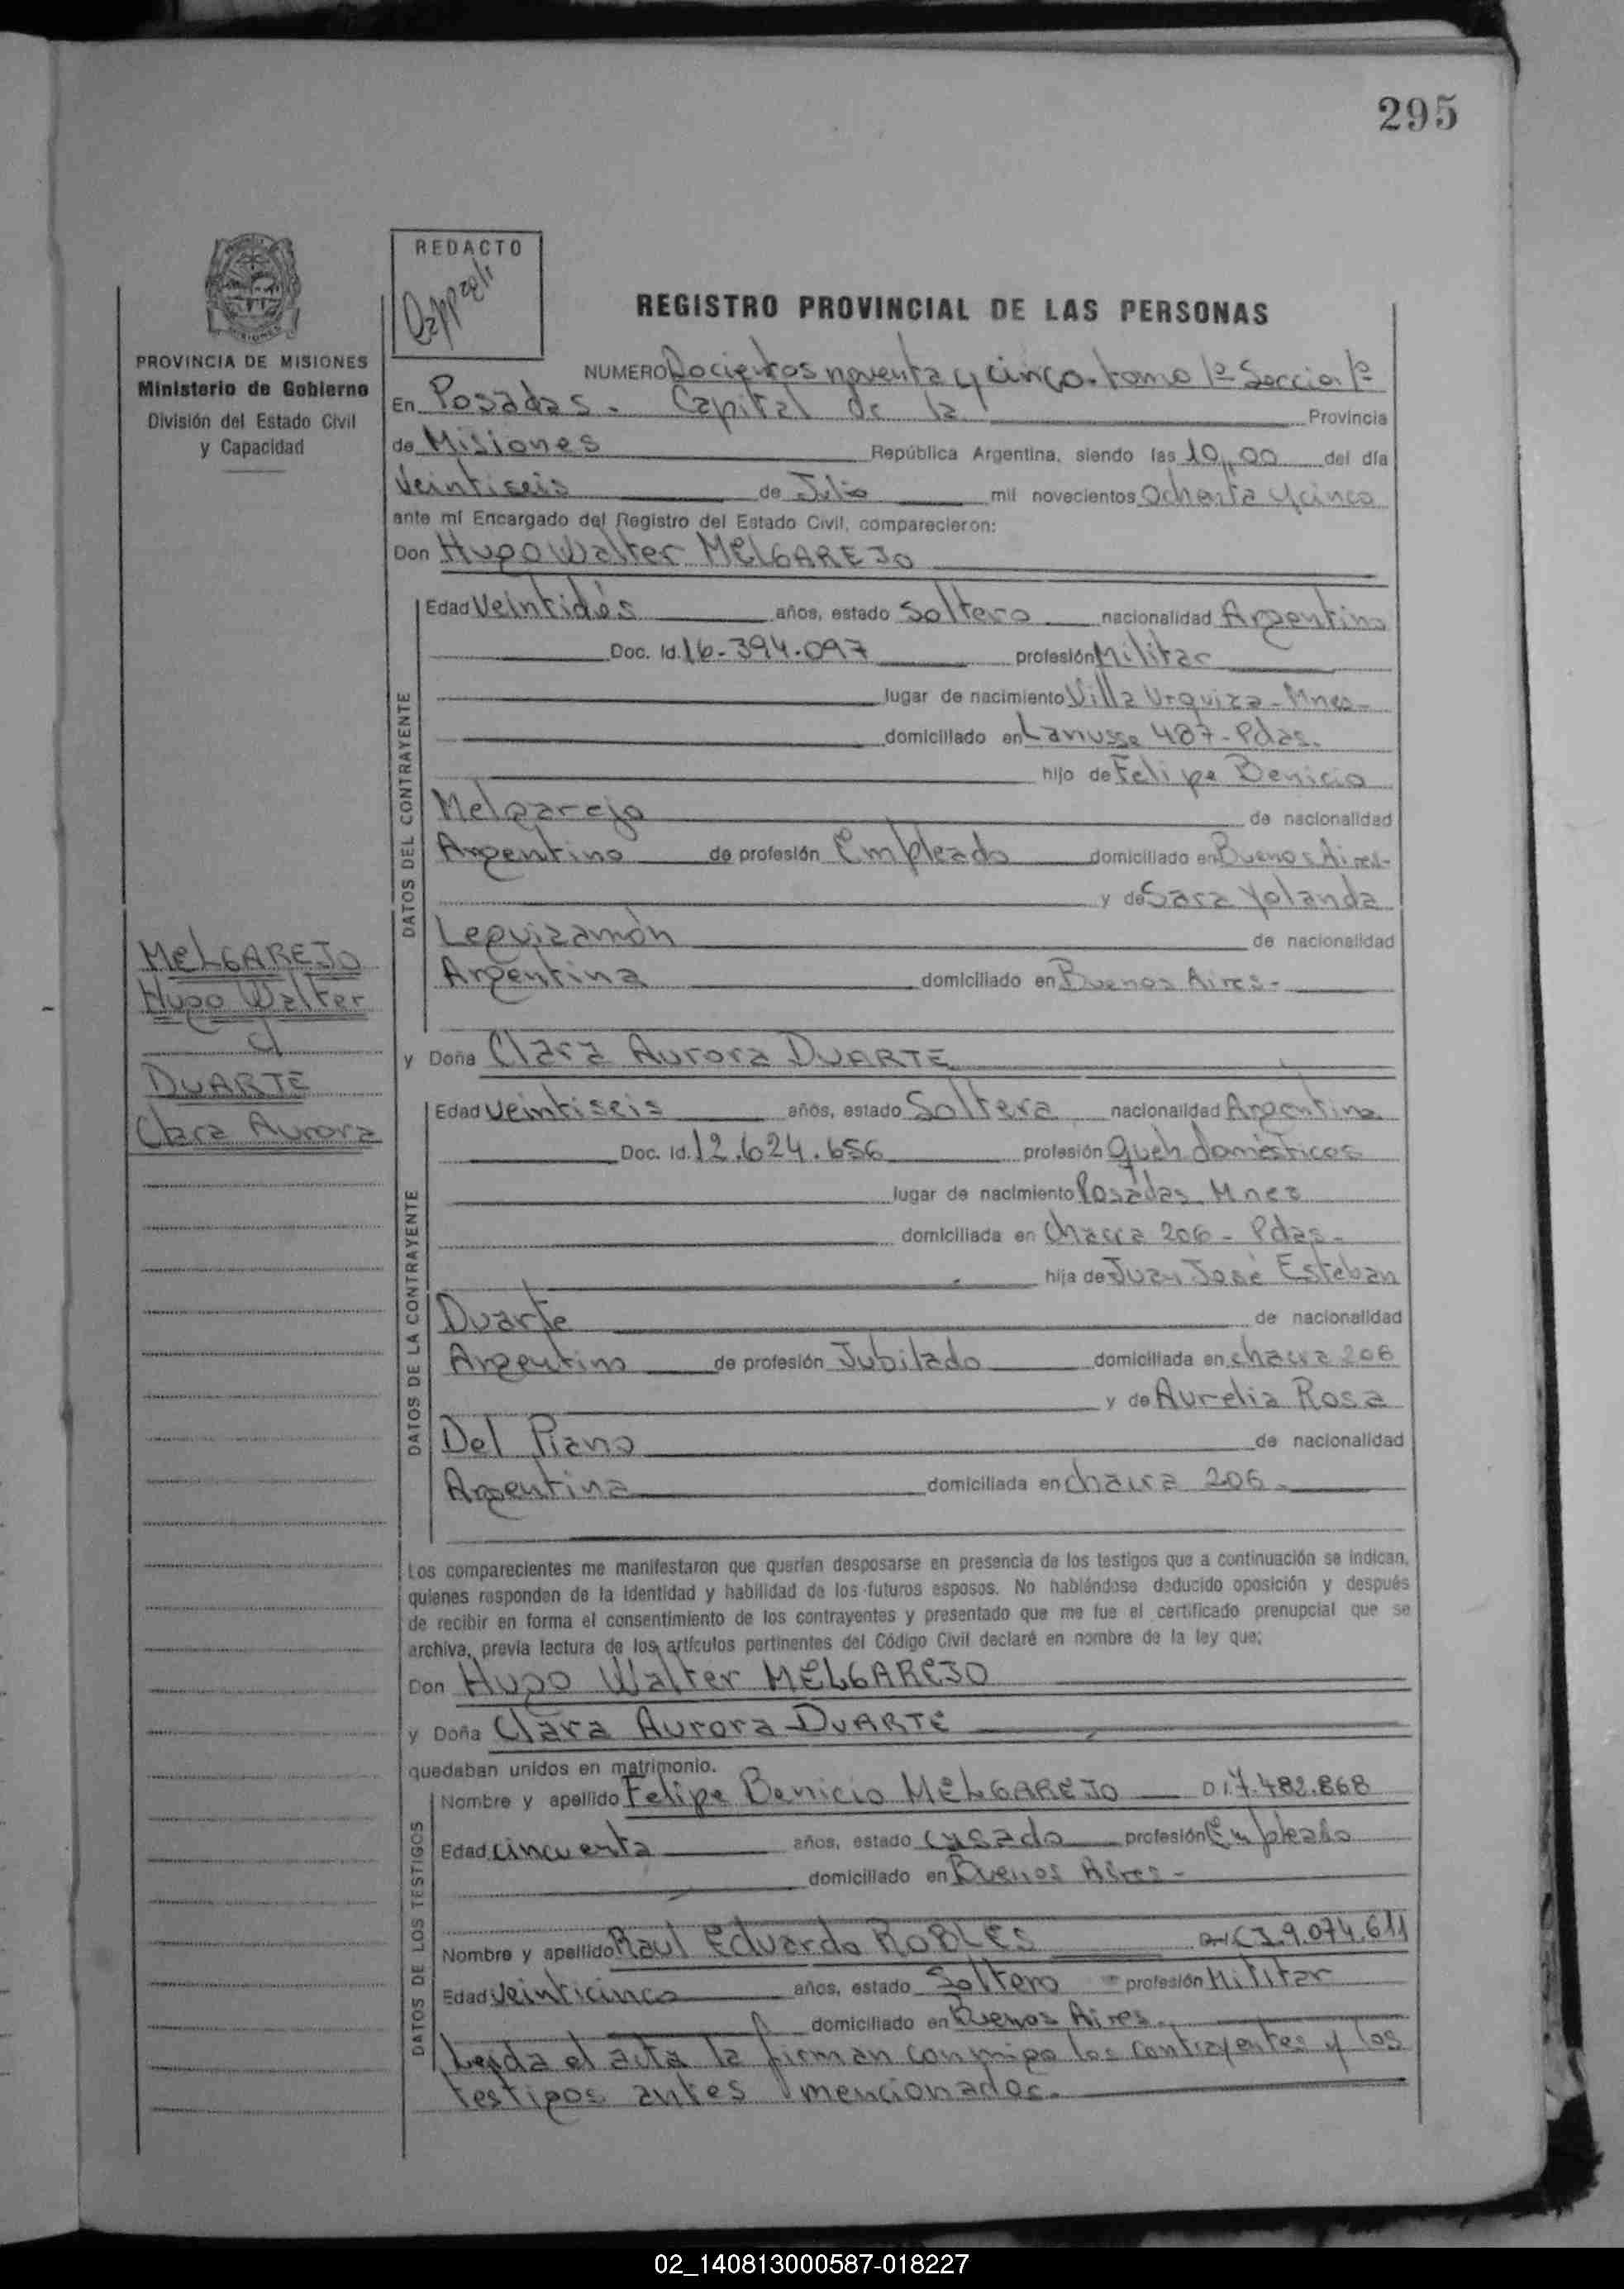 295
REDACTO
REGISTRO PROVINCIAL DE LAS PERSONAS
PROVINCIA DE MISIONES
Ministerio de Gobierno
División del Estado Civil
y Capacidad
NUMERO Docientos noventa y cinco. tomo 1º Seccion 1º
En Posadas. Capital de la Provincia
de Misiones República Argentina, siendo las 10,00 del día
Veintiseis de Julio mil novecientos Ochenta y cinco
ante mí Encargado del Registro del Estado Civil, comparecieron:
Don Hugo Walter MELGAREJO
DATOS DEL CONTRAYENTE
Edad Veintidós años, estado Soltero nacionalidad Argentino
Doc. Id. 16.394.097 profesión Militar
lugar de nacimiento Villa Urquiza - Mnes-
domiciliado en Lanusse 487 - Pdas.
hijo de Felipe Benicio
Melgarejo de nacionalidad
Argentino de profesión Empleado domiciliado en Buenos Aires-
y de Sara Yolanda
Leguizamón de nacionalidad
Argentina domiciliado en Buenos Aires-
MELGAREJO
Hugo Walter
c/
DUARTE
Clara Aurora
y Doña Clara Aurora DUARTE
DATOS DE LA CONTRAYENTE
Edad Veintiseis años, estado Soltera nacionalidad Argentina
Doc. Id. 12.624.656 profesión Queh domésticos
lugar de nacimiento Posadas Mnes
domiciliada en Chacra 206 - Pdas-
hija de Juan José Esteban
Duarte de nacionalidad
Argentino de profesión Jubilado domiciliada en chacra 206
y de Aurelia Rosa
Del Piano de nacionalidad
Argentina domiciliada en chacra 206.
Los comparecientes me manifestaron que querían desposarse en presencia de los testigos que a continuación se indican,
quienes responden de la identidad y habilidad de los futuros esposos. No habiéndose deducido oposición y después
de recibir en forma el consentimiento de los contrayentes y presentado que me fue el certificado prenupcial que se
archiva, previa lectura de los artículos pertinentes del Código Civil declaré en nombre de la ley que;
Don Hugo Walter MELGAREJO
y Doña Clara Aurora DUARTE
quedaban unidos en matrimonio.
DATOS DE LOS TESTIGOS
Nombre y apellido Felipe Benicio MELGAREJO D.I 7.482.868
Edad cincuenta años, estado casado profesión Empleado
domiciliado en Buenos Aires-
Nombre y apellido Raul Eduardo ROBLES 9.074.611
Edad Veinticinco años, estado Soltero profesión Militar
domiciliado en Buenos Aires.
Leida el acta la firman conmigo los contrayentes y los
testigos antes mencionados.
02_140813000587-018227